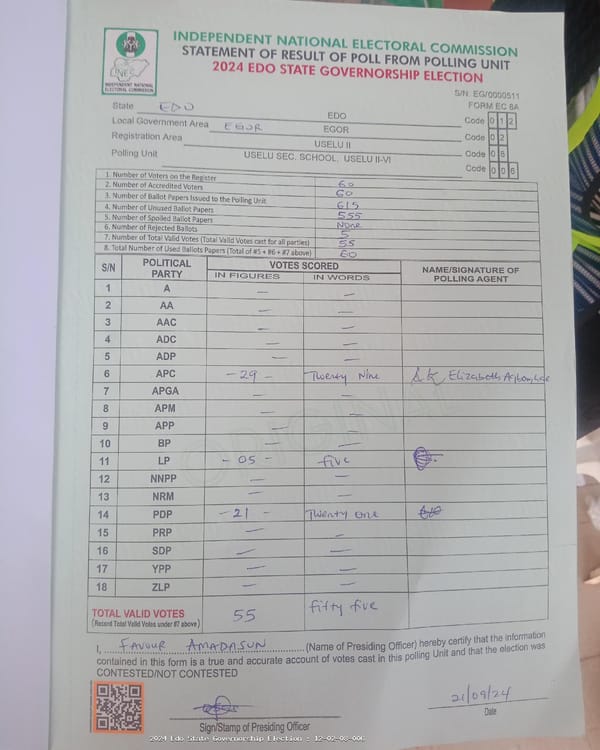 INDEPENDENT NATIONAL ELECTORAL COMMISSION
STATEMENT OF RESULT OF POLL FROM POLLING UNIT
2024 EDO STATE GOVERNORSHIP ELECTION
INEC
INDEPENDENT NATIONAL
ELECTORAL COMMISSION
S/N. EG/0000511
FORM EC 8A
State EDO EDO Code 0 1 2
Local Government Area EGOR EGOR Code 0 2
Registration Area USELU II Code 0 8
Polling Unit USELU SEC. SCHOOL, USELU II-VI Code 0 0 6
1. Number of Voters on the Register 60
2. Number of Accredited Voters 60
3. Number of Ballot Papers Issued to the Polling Unit 615
4. Number of Unused Ballot Papers 555
5. Number of Spoiled Ballot Papers None
6. Number of Rejected Ballots 5
7. Number of Total Valid Votes (Total Valid Votes cast for all parties) 55
8. Total Number of Used Ballots Papers (Total of #5 + #6 + #7 above) 60
S/N POLITICAL PARTY VOTES SCORED NAME/SIGNATURE OF POLLING AGENT
IN FIGURES IN WORDS
1 A — —
2 AA — —
3 AAC — —
4 ADC — —
5 ADP — —
6 APC - 29 - Twenty Nine Elizabeth
7 APGA — —
8 APM — —
9 APP — —
10 BP — —
11 LP - 05 - five
12 NNPP — —
13 NRM — —
14 PDP - 21 - Twenty one
15 PRP — —
16 SDP — —
17 YPP — —
18 ZLP — —
TOTAL VALID VOTES 55 fifty five
(Record Total Valid Votes under #7 above)
I, FAVOUR AMADASUN (Name of Presiding Officer) hereby certify that the information
contained in this form is a true and accurate account of votes cast in this polling Unit and that the election was
CONTESTED/NOT CONTESTED
21/09/24
Sign/Stamp of Presiding Officer Date
2024 Edo State Governorship Election : 12-02-08-006